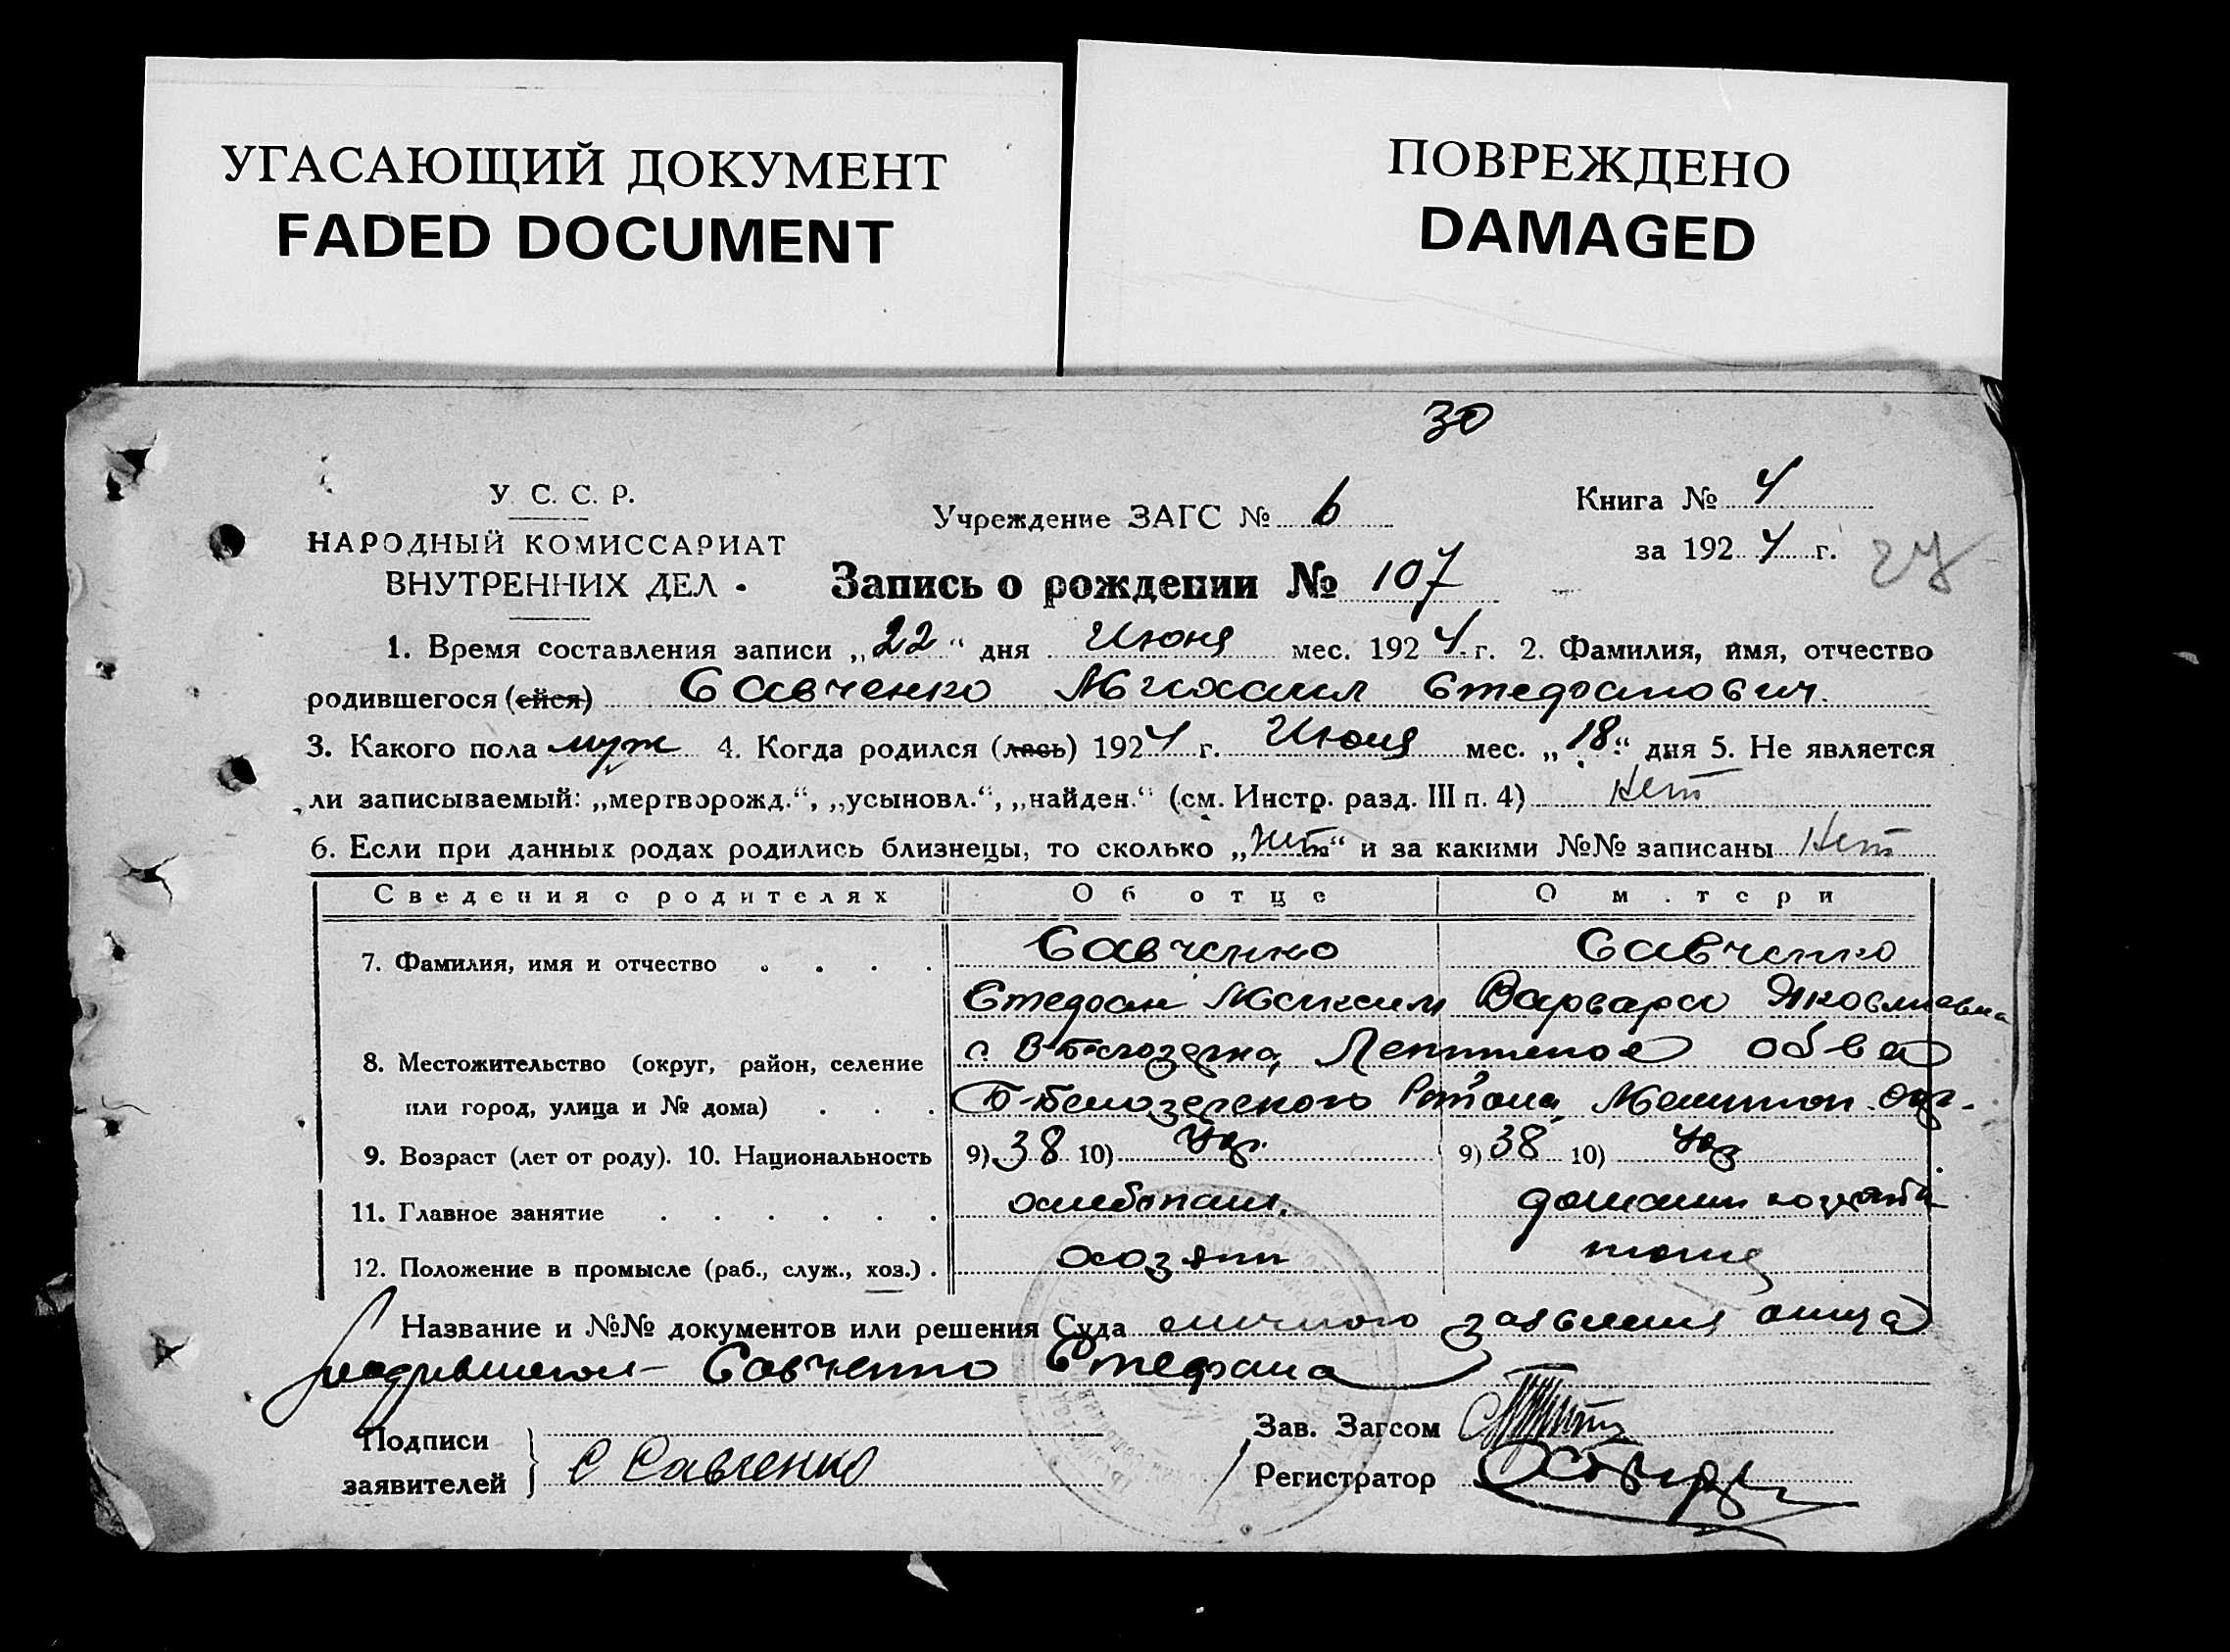 УГАСАЮЩИЙ ДОКУМЕНТ
FADED DOCUMENT
ПОВРЕЖДЕНО
DAMAGED
30
У. С. С. Р.
НАРОДНЫЙ КОМИССАРИАТ
ВНУТРЕННИХ ДЕЛ
Учреждение ЗАГС № 6
Книга № 4
за 1924 г.
27
Запись о рождении № 107
1. Время составления записи „22“ дня Июня мес. 1924 г. 2. Фамилия, имя, отчество
родившегося (ейся) Савченко Михаил Стефанович.
3. Какого пола муж 4. Когда родился (лась) 1924 г. Июня мес. „18“ дня 5. Не является
ли записываемый: „мертворожд.“, „усыновл.“, „найден.“ (см. Инстр. разд. III п. 4) Нет
6. Если при данных родах родились близнецы, то сколько „Нет“ и за какими №№ записаны Нет
Сведения о родителях Об отце О м.тери
7. Фамилия, имя и отчество . . . . Савченко Савченко
Стефан Максим Варвара Яковлиевна
8. Местожительство (округ, район, селение с. В-Белозерка,
или город, улица и № дома) . . . Б-Белозерского Района, Мелитоп. Окр.
9. Возраст (лет от роду). 10. Национальность 9) 38 10) Укр. 9) 38 10) Укр
11. Главное занятие . . . . . . хлебопаш. домашн
12. Положение в промысле (раб., служ., хоз.) . хозяин
Название и №№ документов или решения Суда личного заявления отца
родившегося Савченко Стефана
Подписи
заявителей
С Савченко
Зав. Загсом
Регистратор